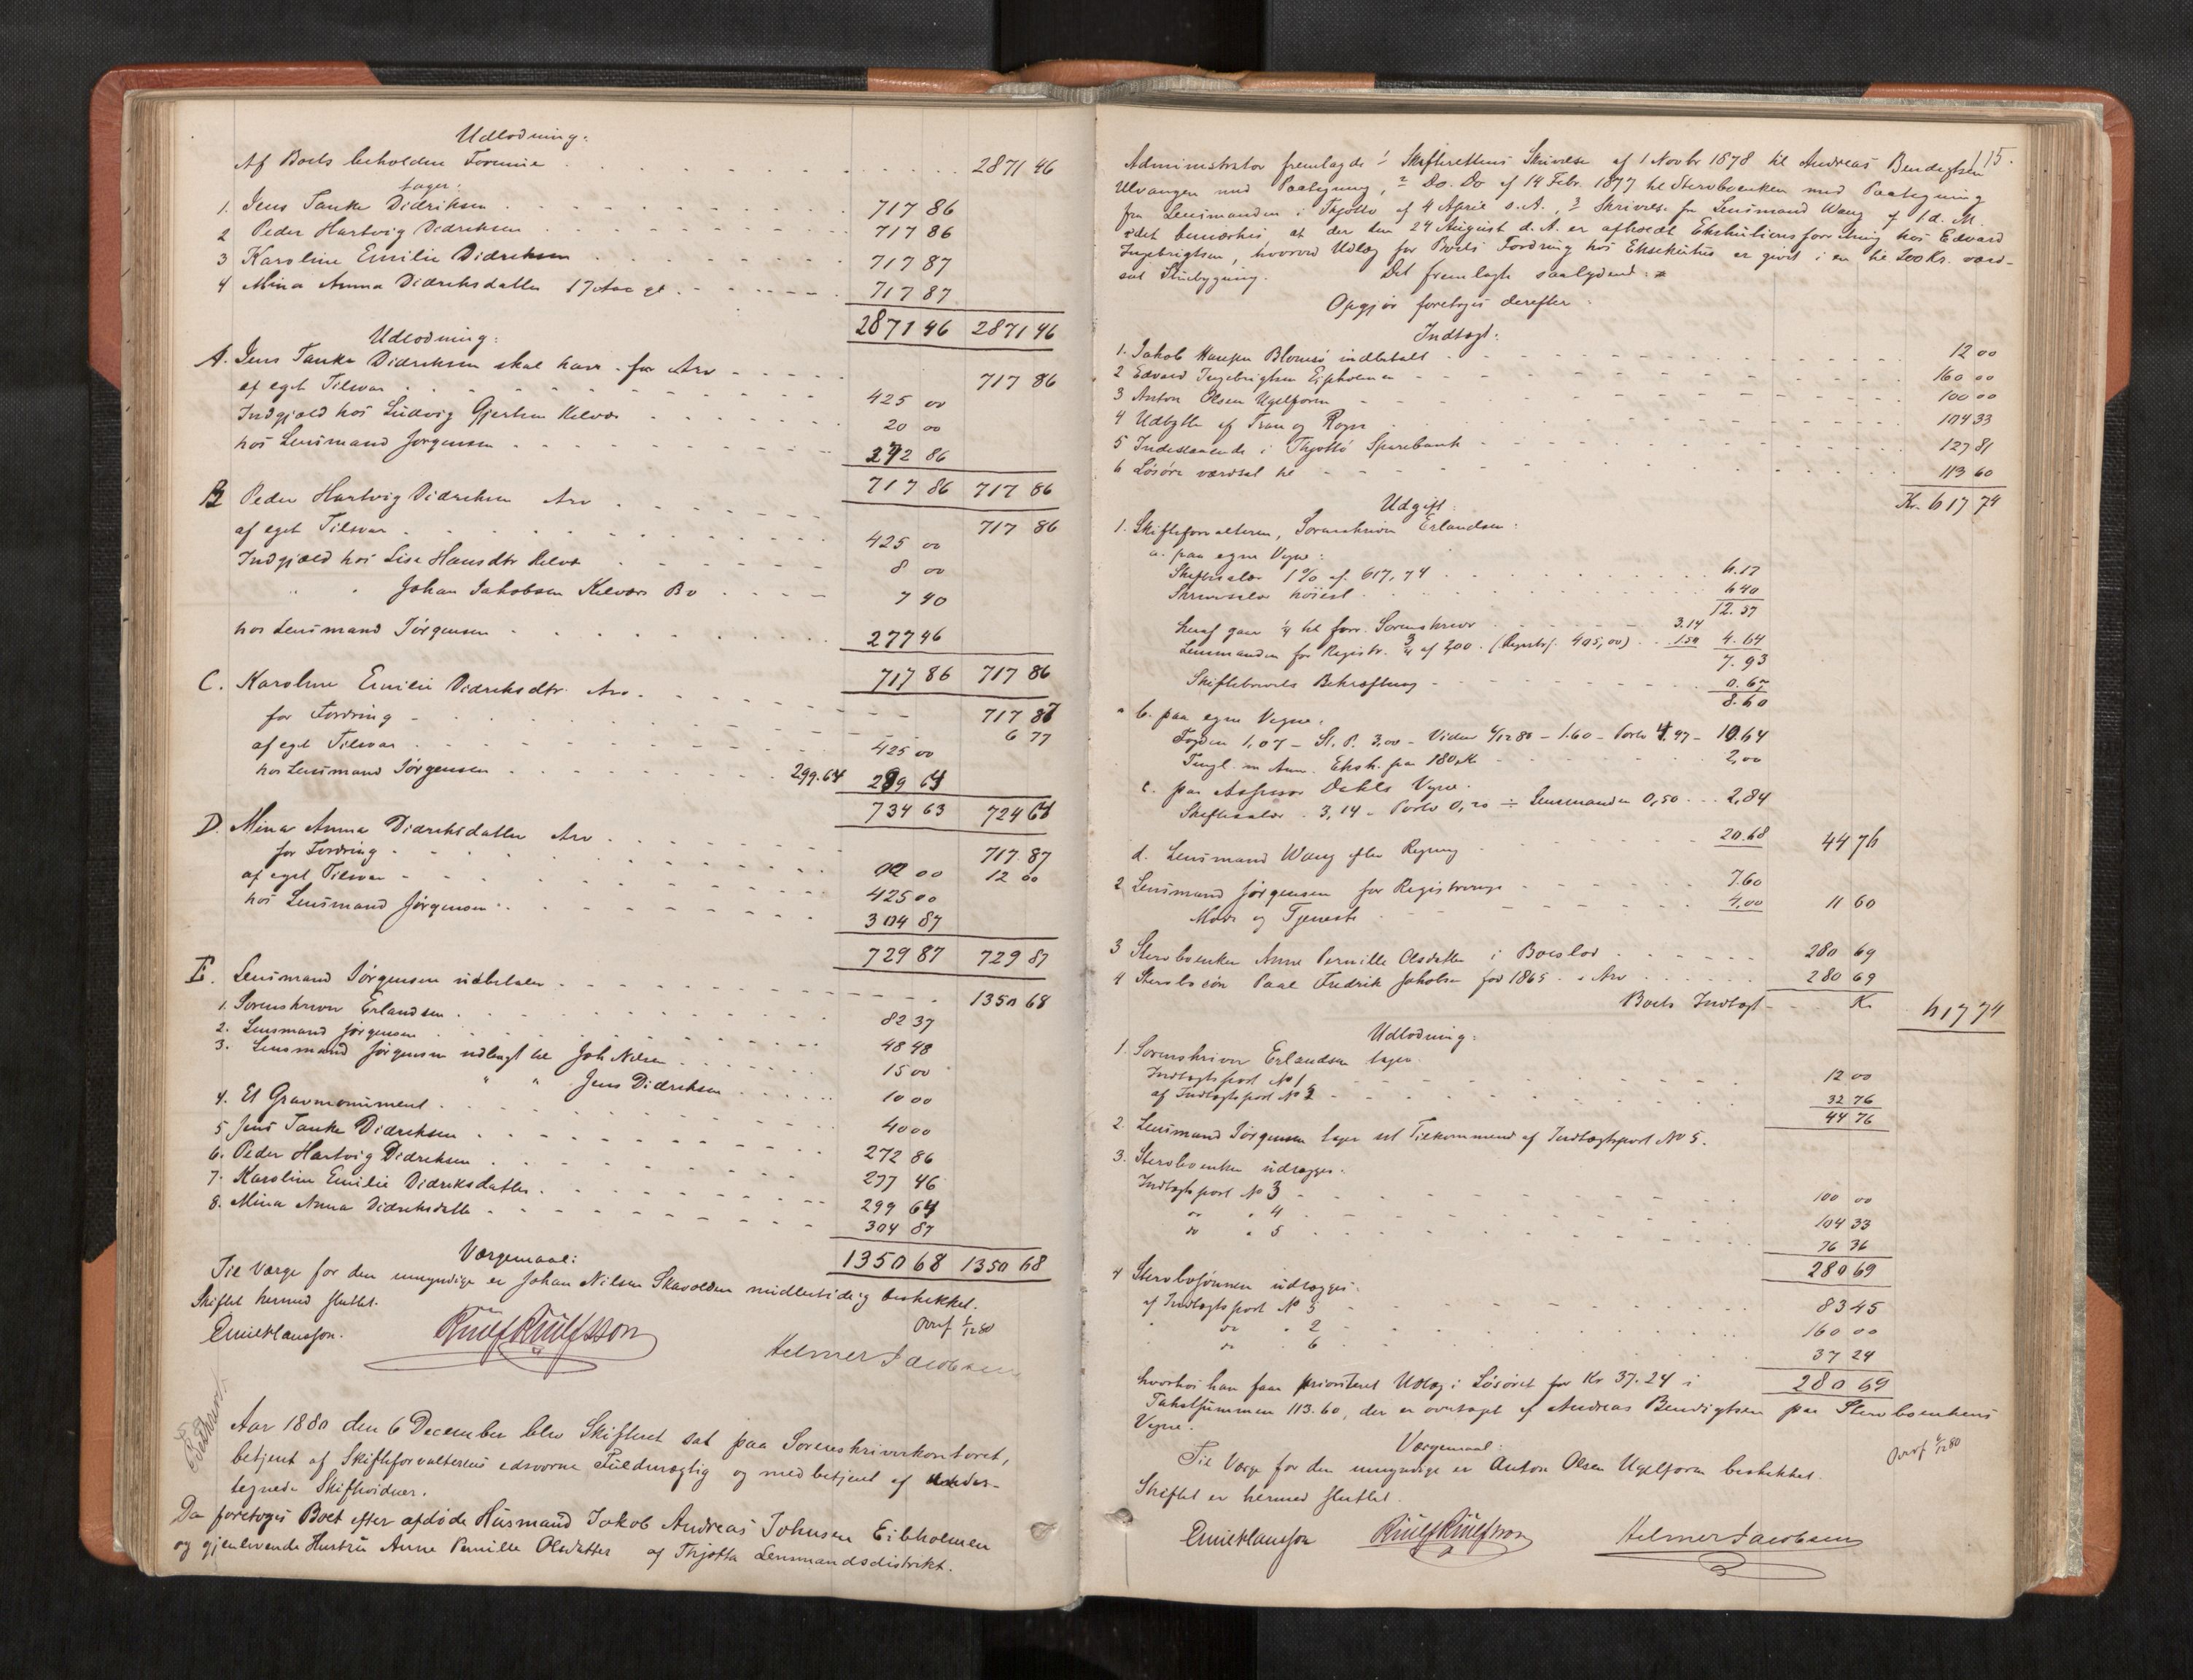 Udlodning:
Af Boets beholdne Formue . . . 2871 46
tager:
1. Jens Tanke Didriksen . . . 717 86
2 Peder Hartvig Didriksen . . . 717 86
3 Karoline Emilie Didriksen . . . 717 87
4 Mina Anna Didriksdatter 17 Aar gl. . . . 717 87
2871 46 2871 46
Udlodning:
A. Jens Tanke Didriksen skal have for Arv . . . 717 86
af eget Tilsvar . . . 425 00
Indgjæld hos Ludvig Gjertsen Kelvær . . . 20 00
hos Lensmand Jørgensen . . . 272 86
717 86 717 86
B Peder Hartvig Didriksen Arv . . . 717 86
af eget Tilsvar . . . 425 00
Indgjæld hos Lise Hansdtr Kelvær . . . 8 00
" " Johan Jakobsen Kelværs Bo . . . 7 40
hos Lensmand Jørgensen . . . 277 46
717 86 717 86
C. Karoline Emilie Didriksdtr. Arv . . . 717 87
for Fordring . . . 6 77
af eget Tilsvar . . . 425 00
hos Lensmand Jørgensen . . . 299.64 299 64
734 63 724 64
D. Mina Anna Didriksdatter Arv . . . 717 87
for Fordring . . . 00 00 12 00
af eget Tilsvar . . . 425 00
hos Lensmand Jørgensen . . . 304 87
729 87 729 87
E. Lensmand Jørgensen udbetaler . . . 1350 68
1. Sorenskriver Erlandsen . . . 82 37
2. Lensmand Jørgensen . . . 48 48
3. Lensmand Jørgensen udlagt til Joh Nilsen . . . 15 00
" " Jens Didriksen . . . 10 00
4. Et Gravmonument . . . 40 00
5 Jens Tanke Didriksen . . . 272 86
6. Peder Hartvig Didriksen . . . 277 46
7. Karoline Emilie Didriksdatter . . . 299 64
8. Mina Anna Didriksdatter . . . 304 87
1350 68 1350 68
Værgemaal:
Til Værge for den umyndige er Johan Nilsen Skavolden midlertidig beskikket.
Skiftet hermed sluttet.
Ovrf 6/12 80
Emil Hansson. Rüulf Rüulfsson Helmer Jacobsen
Aar 1880 den 6 December blev Skifteret sat paa Sorenskriverkontoret,
betjent af Skifteforvalterens edsvorne Fuldmægtig og med betjent af under-
tegnede Skiftevidner.
Da foretoges Boet efter afdøde Husmand Jakob Andreas Johnsen Eibholmen
og gjenlevende Hustru Anne Pernille Olsdatter af Thjøtta Lensmandsdistrikt.
115.
Administrator fremlagde 1 Skifterettens Skrivelse af 1 Novbr 1878 til Andreas Bendigtsen
Ulvangen med Paategning, 2 Do. Do af 14 Febr. 1877 til Stervboenken med Paategning
fra Lensmanden i Thjøtto af 4 April s.A., 3 Skrivelse fra Lensmand Wang af f.d. M.
idet bemærkes at der den 24 August d.A. er afholdt Exekutionsforretning hos Edvard
Ingebrigtsen, hvorved Udlæg for Boets Fordring hos Eksekutus er givet i en til 200 Kr. værd-
sat Stuebygning. Det fremlagte saalydende:
Opgjør foretoges derefter.
Indtægt:
1. Jakob Hansen Blomsø indbetalt . . . 12 00
2 Edvard Ingebrigtsen Eibholmen . . . 160 00
3 Anton Olsen Ugelform . . . 100 00
4 Udbytte af Tran og Rogn . . . 104 33
5 Indestaaende i Thjøttø Sparebank . . . 127 81
6 Løsøre værdsat til . . . 113 60
Kr. 617 74
Udgift:
1. Skifteforvalteren, Sorenskriver Erlandsen:
a. paa egne Vegne:
Skiftesalær 1% af 617,74 . . . 6.17
Skriversalær høiest . . . 6 40
12.57
heraf gaar 1/4 til forr. Sorenskriver . . . 3.14
Lensmanden for Registr. 3/4 af 2,00. (Registrf. 405,00) . . 1.50 4.64
7.93
Skiftebrevets Bekræftning . . . 0.67
8.60
b. paa egne Vegne.
Fogden 1,07 – St. P. 3,00 – Vidner 6/12 80 – 1.60 – Porto 4.97 – 10.64
Tingl. m Ann. Eksk. paa 180 Kr . . . 2,00
c. paa Assessor Dahls Vegne.
Skiftesalær . 3,14 – Porto 0,20 ÷ Lensmanden 0,50 . . . 2,84
d. Lensmand Wang efter Regning . . . 20.68 44 76
2 Lensmand Jørgensen for Registrering . . . 7.60
Møde og Tjeneste . . . 4,00 11 60
3 Stervboenken Anne Pernille Olsdatter i Boeslod . . . 280 69
4 Stervbosøn Paal Fredrik Jakobsen fød 1865 . i Arv . . . 280 69
Boets Indtægt . . . Kr. 617 74
Udlodning:
1. Sorenskriver Erlandsen tager.
Indtægtspost No 1 . . . 12 00
af Indtægtspost No 6 . . . 32 76
44 76
2. Lensmand Jørgensen tager sit Tilkommende af Indtægtspost No 5.
3. Stervboenken udlægges.
Indtægtspost No 3 . . . 100 00
do " 4 . . . 104 33
do " 5 . . . 76 36
280 69
4 Stervbosønnen udlægges.
af Indtægtspost No 5 . . . 83 45
" do " 2 . . . 160 00
" do " 6 . . . 37 24
280 69
hvorhos han faar prioriteret Udlæg i Løsøret for Kr 37.24 i
Takstsummen 113.60, der er overtaget af Andreas Bendigtsen paa Stervboenkens
Vegne.
Værgemaal:
Ovrf 6/12 80
Til Værge for den umyndige er Anton Olsen Ugelform beskikket.
Skiftet er hermed sluttet.
Emil Hansson Rüulf Rüulfsson Helmer Jacobsen